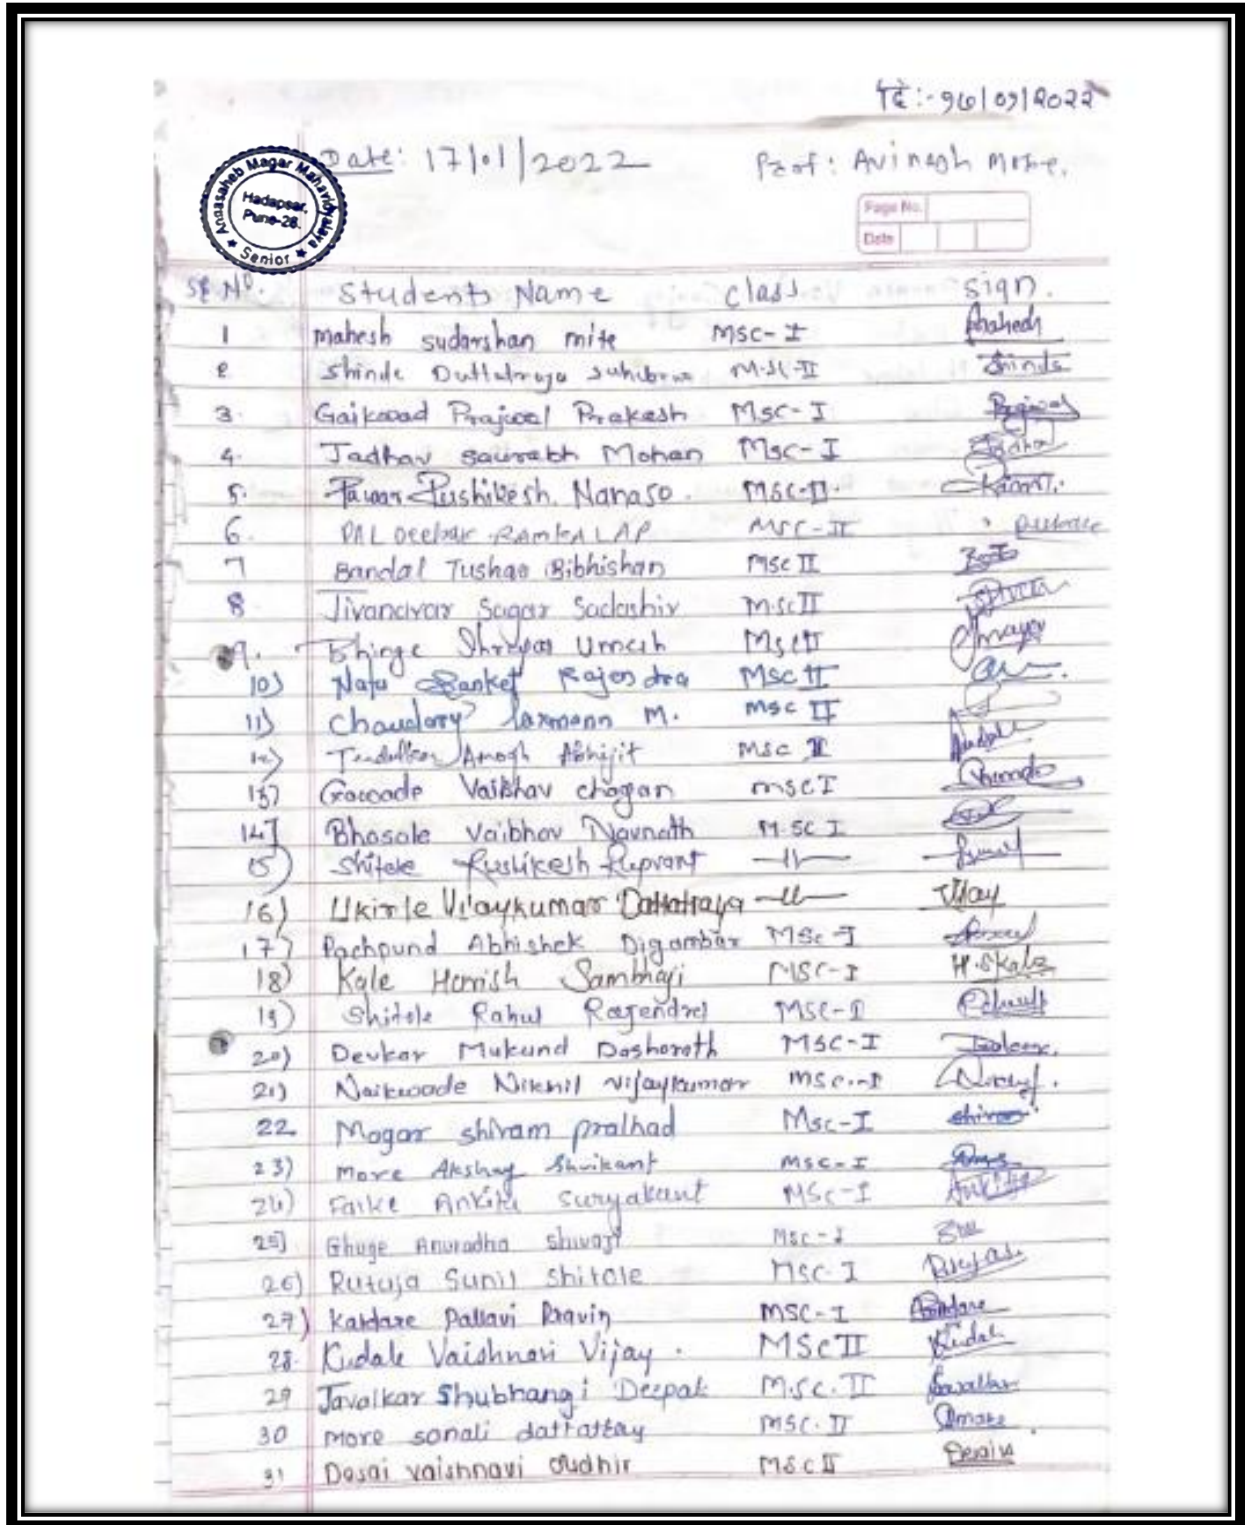 दि:- १७/०१/2022
Date: 17/01/2022 Prof: Avinash More.
Annasaheb Magar Mahavidyalaya
Hadapsar,
Pune-28.
★ Senior ★
Page No.
Date
Sr No. Students Name class sign.
1 mahesh sudarshan mite MSC-I Mahesh
2 Shinde Dattatraya M.SC-II Shinde
3. Gaikwad Prajwal Prakash MSC-I Prajwal
4. Jadhav saurabh Mohan MSC-I Jadhav
5. Pawar Rushikesh Nanaso. MSC-II.
6. PAL Deepak RAMKALAP MSC-II
7 Bandal Tushar Bibhishan MSC II
8 Jivanavar Sagar Sadashiv M.SC II
9. Bhinge Shreyas Umesh MSC II
10) Natu Sanket Rajendra MSC II
11) Chaudary laxmann M. MSC II
12) Tendulkar Amogh Abhijit MSC II
13) Gawade Vaibhav chagan MSC I
14] Bhosale Vaibhav Navnath M.SC I
15) Shitole Rushikesh Ruprant —11—
16) Ukirle Vijaykumar Dattatraya —11— Vijay
17) Pachpund Abhishek Digambar MSc-I
18) Kale Harrish Sambhaji MSC-I H.SKale
19) Shitole Rahul Rajendra MSC-I
20) Devkar Mukund Dasharath MSC-I
21) Naikwade Nikhil vijaykumar MSC-I
22 Mogar shivam pralhad MSC-I shivam
23) More Akshay Shrikant MSC-I
24) Farke Ankita Suryakant MSC-I Ankita
25] Ghuge Anuradha Shivaji MSC-I
26) Rutuja Sunil Shitole MSC-I Rutuja
27) Kardare Pallavi Pravin MSC-I
28. Kudale Vaishnavi Vijay. MSC II Kudale
29 Javalkar Shubhangi Deepak M.SC.II Javalkar
30 more sonali dattatray MSC.II Smore
31 Desai vaishnavi sudhir MSC II Desaiv